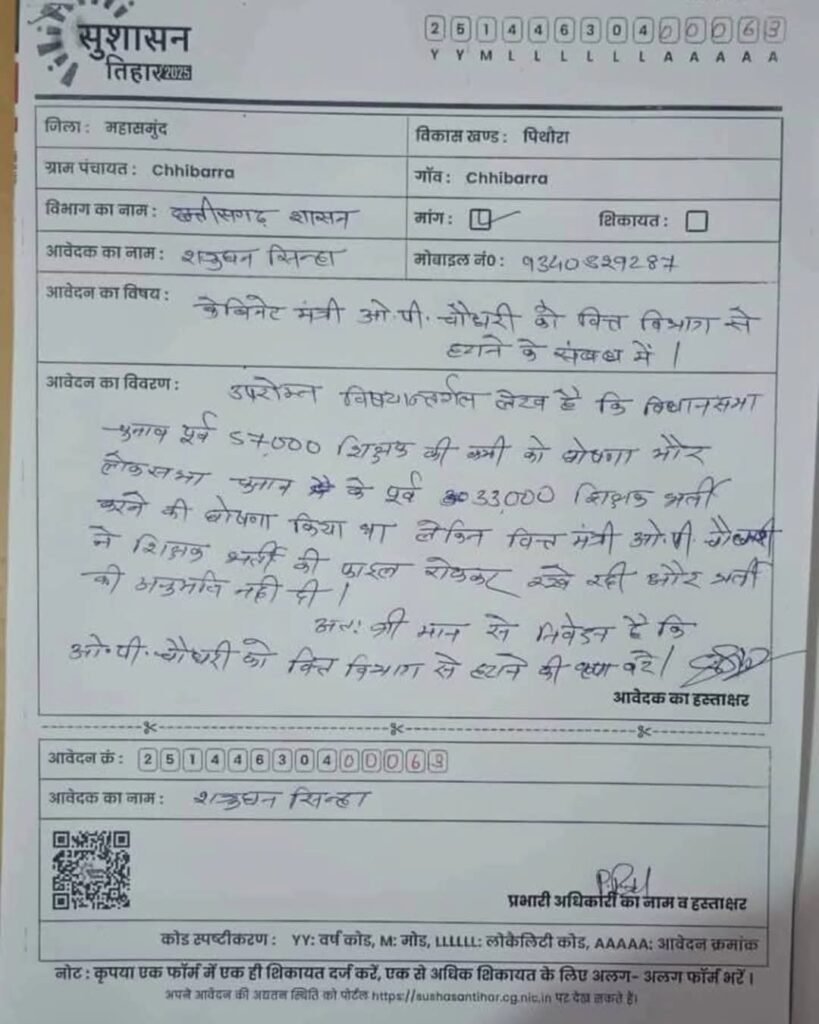 सुशासन
तिहार 2025
2 5 1 4 4 6 3 0 4 0 0 0 6 3
Y Y M L L L L L L A A A A A
जिला : महासमुंद
विकास खण्ड : पिथौरा
ग्राम पंचायत : Chhibarra
गाँव : Chhibarra
विभाग का नाम : छत्तीसगढ़ शासन
मांग :
शिकायत :
आवेदक का नाम : शत्रुघन सिन्हा
मोबाइल नं0 : 9340829287
आवेदन का विषय : केबिनेट मंत्री ओ.पी. चौधरी को वित्त विभाग से
हटाने के संबंध में ।
आवेदन का विवरण : उपरोक्त विषयान्तर्गत लेख है कि विधानसभा
चुनाव पूर्व 57,000 शिक्षक की कमी को घोषणा और
लोकसभा चुनाव के पूर्व 33,000 शिक्षक भर्ती
करने की घोषणा किया था लेकिन वित्त मंत्री ओ.पी. चौधरी
ने शिक्षक भर्ती की फाइल रोककर रखे रही और भर्ती
की अनुमति नही दी ।
अतः श्री मान से निवेदन है कि
ओ.पी. चौधरी को वित्त विभाग से हटाने की कृपा करे ।
आवेदक का हस्ताक्षर
आवेदन क्रं : 2 5 1 4 4 6 3 0 4 0 0 0 6 3
आवेदक का नाम : शत्रुघन सिन्हा
प्रभारी अधिकारी का नाम व हस्ताक्षर
कोड स्पष्टीकरण : YY: वर्ष कोड, M: मोड, LLLLLL: लोकैलिटी कोड, AAAAA: आवेदन क्रमांक
नोट : कृपया एक फॉर्म में एक ही शिकायत दर्ज करें, एक से अधिक शिकायत के लिए अलग- अलग फॉर्म भरें ।
अपने आवेदन की अद्यतन स्थिति को पोर्टल https://sushasantihar.cg.nic.in पर देख सकते हैं।